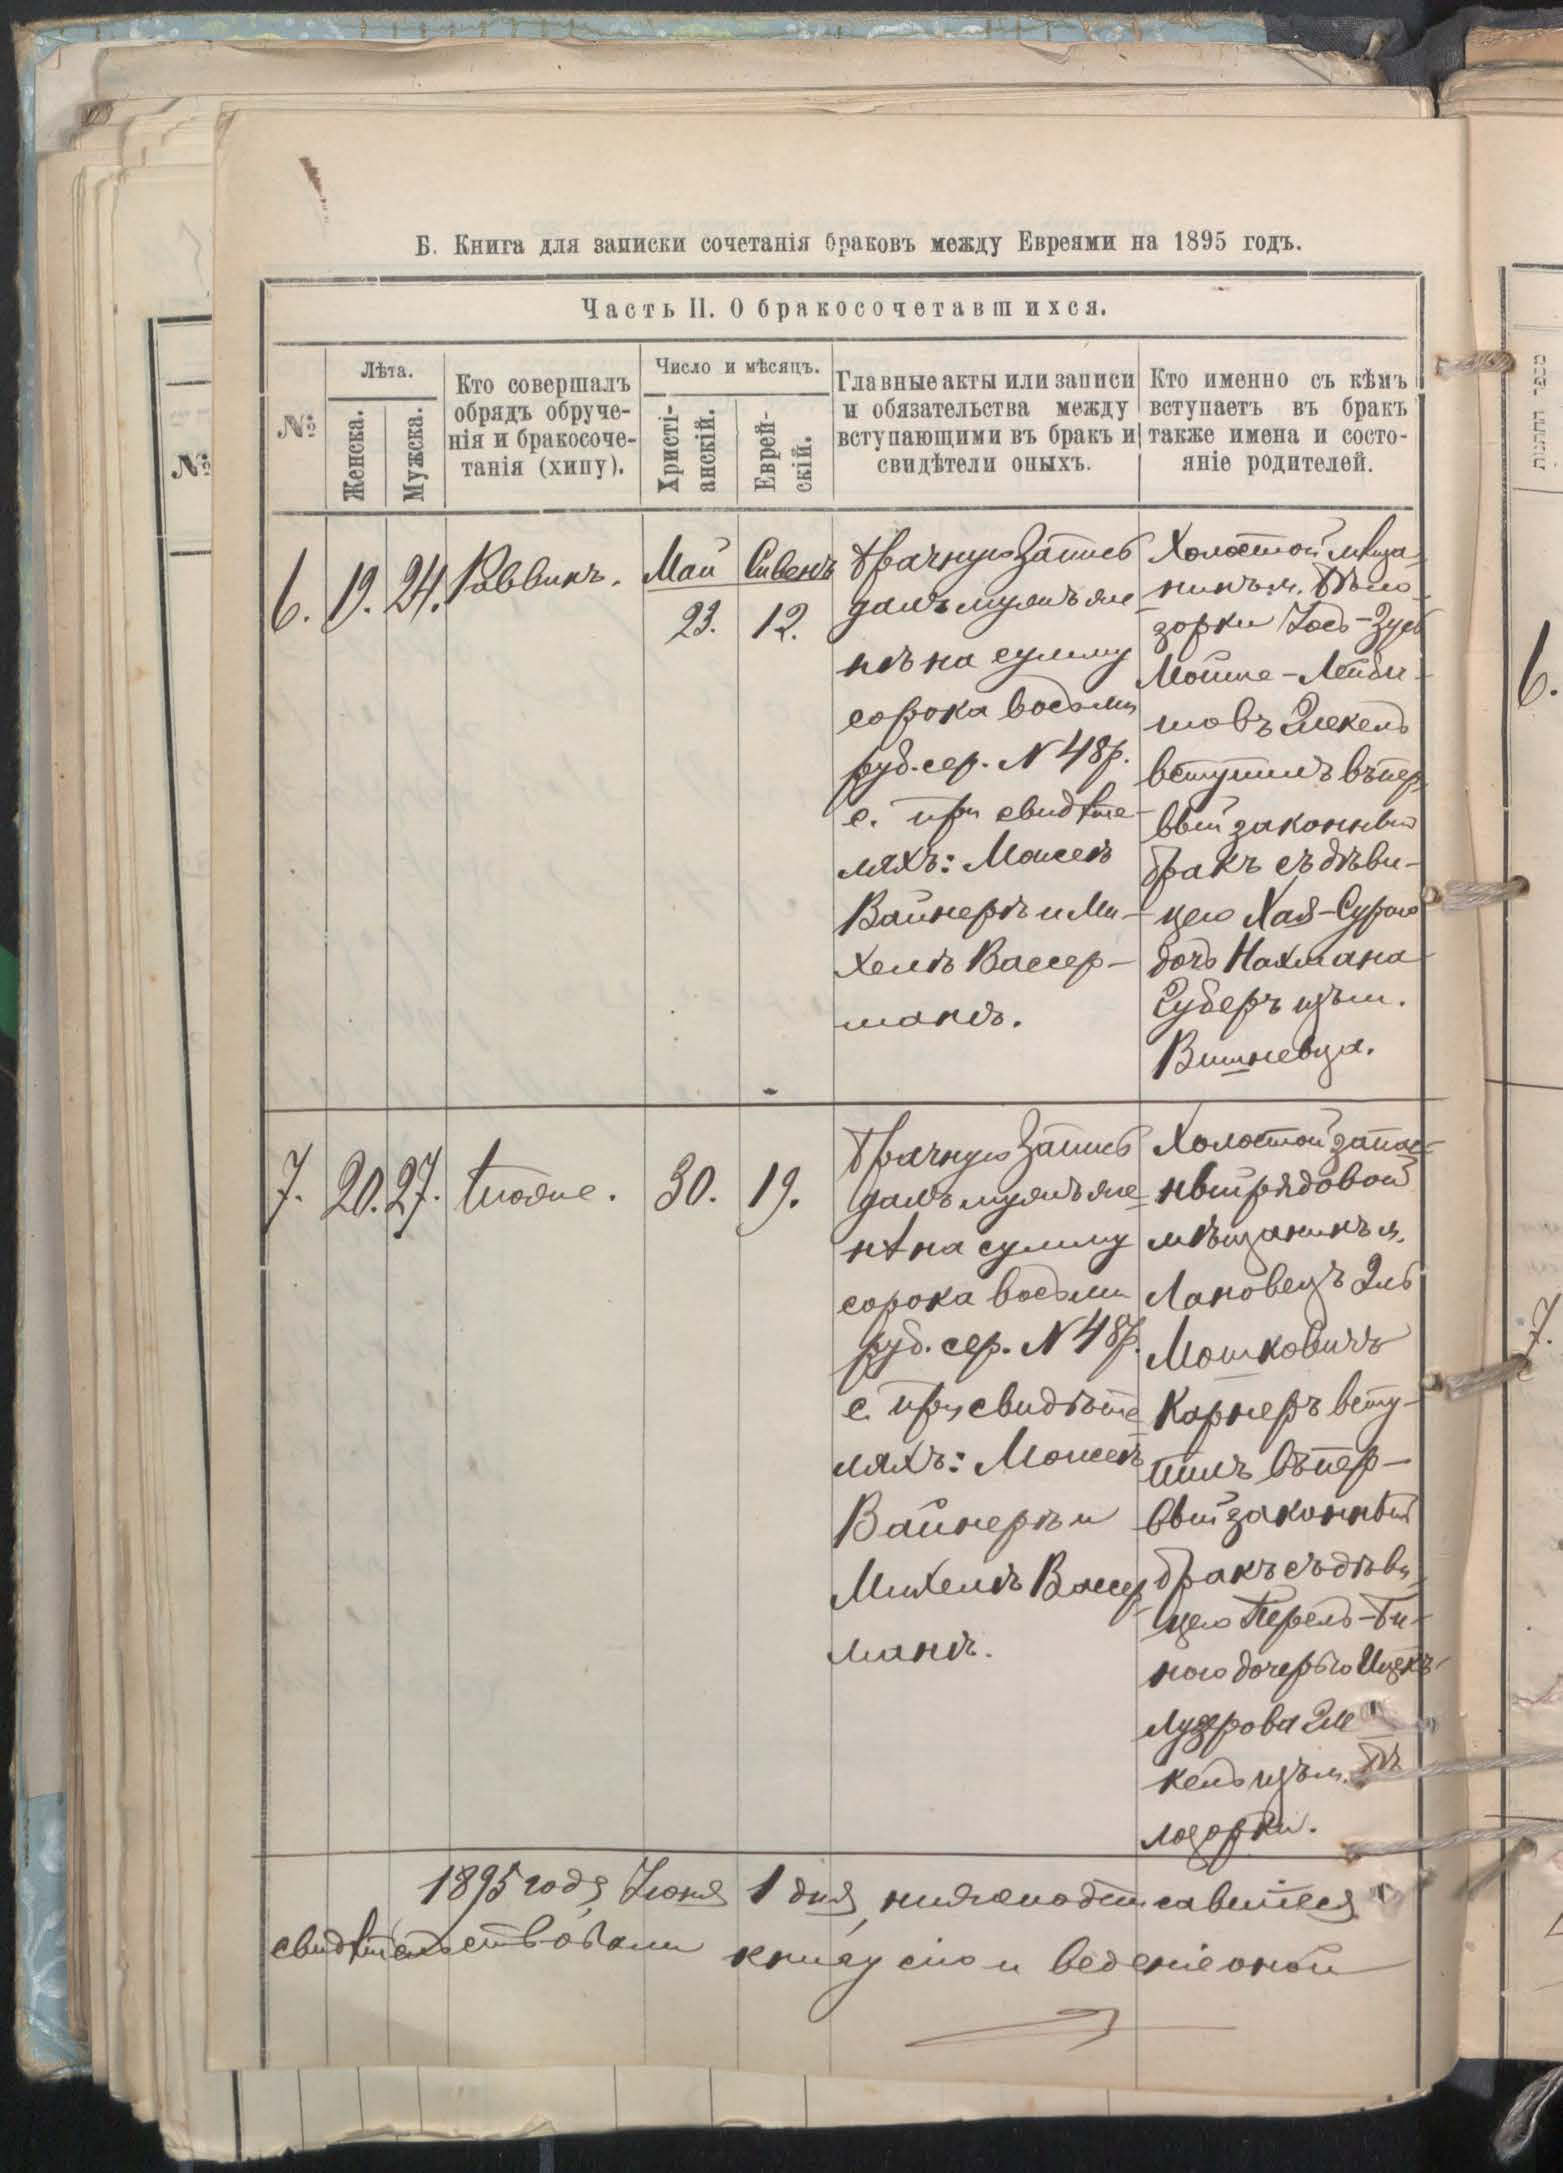 Б. Книга для записки сочетанія браковъ между Евреями на 1895 годъ.
Часть II. О бракосочетавшихся.
№
Лѣта.
Женска.
Мужска.
Кто совершалъ
обрядъ обруче-
нія и бракосоче-
танія (хипу).
Число и мѣсяцъ.
Христі-
анскій.
Еврей-
скій.
Главные акты или записи
и обязательства между
вступающими въ бракъ и
свидѣтели оныхъ.
Кто именно съ кѣмъ
вступаетъ въ бракъ
также имена и состо-
яніе родителей.
6.
19.
24.
Раввинъ.
Май
23.
Сивенъ
12.
Брачную запись
далъ мужъ же
нѣ на сумму
сорока восьми
руб. сер. N 48 р.
с. при свидѣте-
ляхъ: Моисей
Вайнеръ и Ми-
хель Вассер-
манъ.
Холостой мѣща-
нинъ м. Бѣло-
зорки Іось-Зусь
Мойше-Лейби-
мовъ
вступилъ въ пер-
вый законный
бракъ съ дѣви-
цею Хая-Сурою
дочь Нахмана
Губеръ изъ м.
Вишневца.
7.
20.
27.
тоже.
30.
19.
Брачную запись
далъ мужъ же
нѣ на сумму
сорока восьми
руб. сер. N 48 р.
с. при свидѣте
ляхъ: Моисей
Вайнеръ и
Михель Вассер
манъ.
Холостой запас-
ный рядовой
мѣщанинъ м.
Лановецъ Эль
Мошковичъ
Карнеръ всту-
пилъ въ пер-
вый законный
бракъ съ дѣви-
цею Перель-Би-
ною дочерью Ицекъ-
Лузерова
кель изъ м. Бѣ
лозорки.
1895 года Іюня 1 дня, нижеподписавшіеся
свидѣтельствовали книгу сію и веденіе оной
№
6.
7.